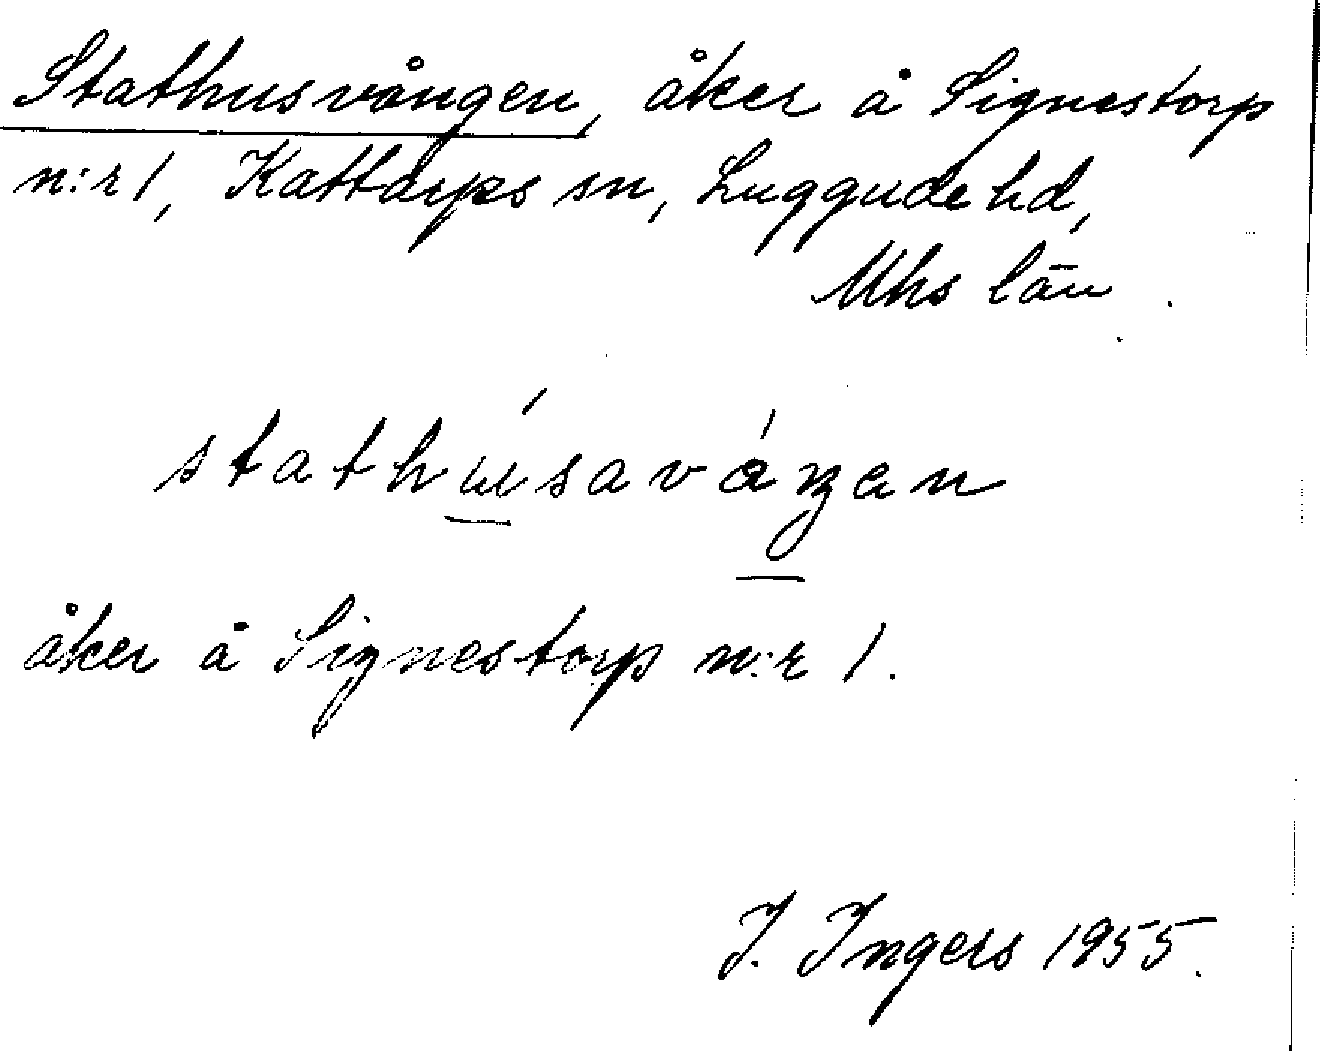 Stathusvången, åker å Signestorp
n:r 1, Kattarps sn, Luggude hd,
Mhs län.
stathúsavåŋen
åker å Signestorp n:r 1.
I. Ingers 1955.